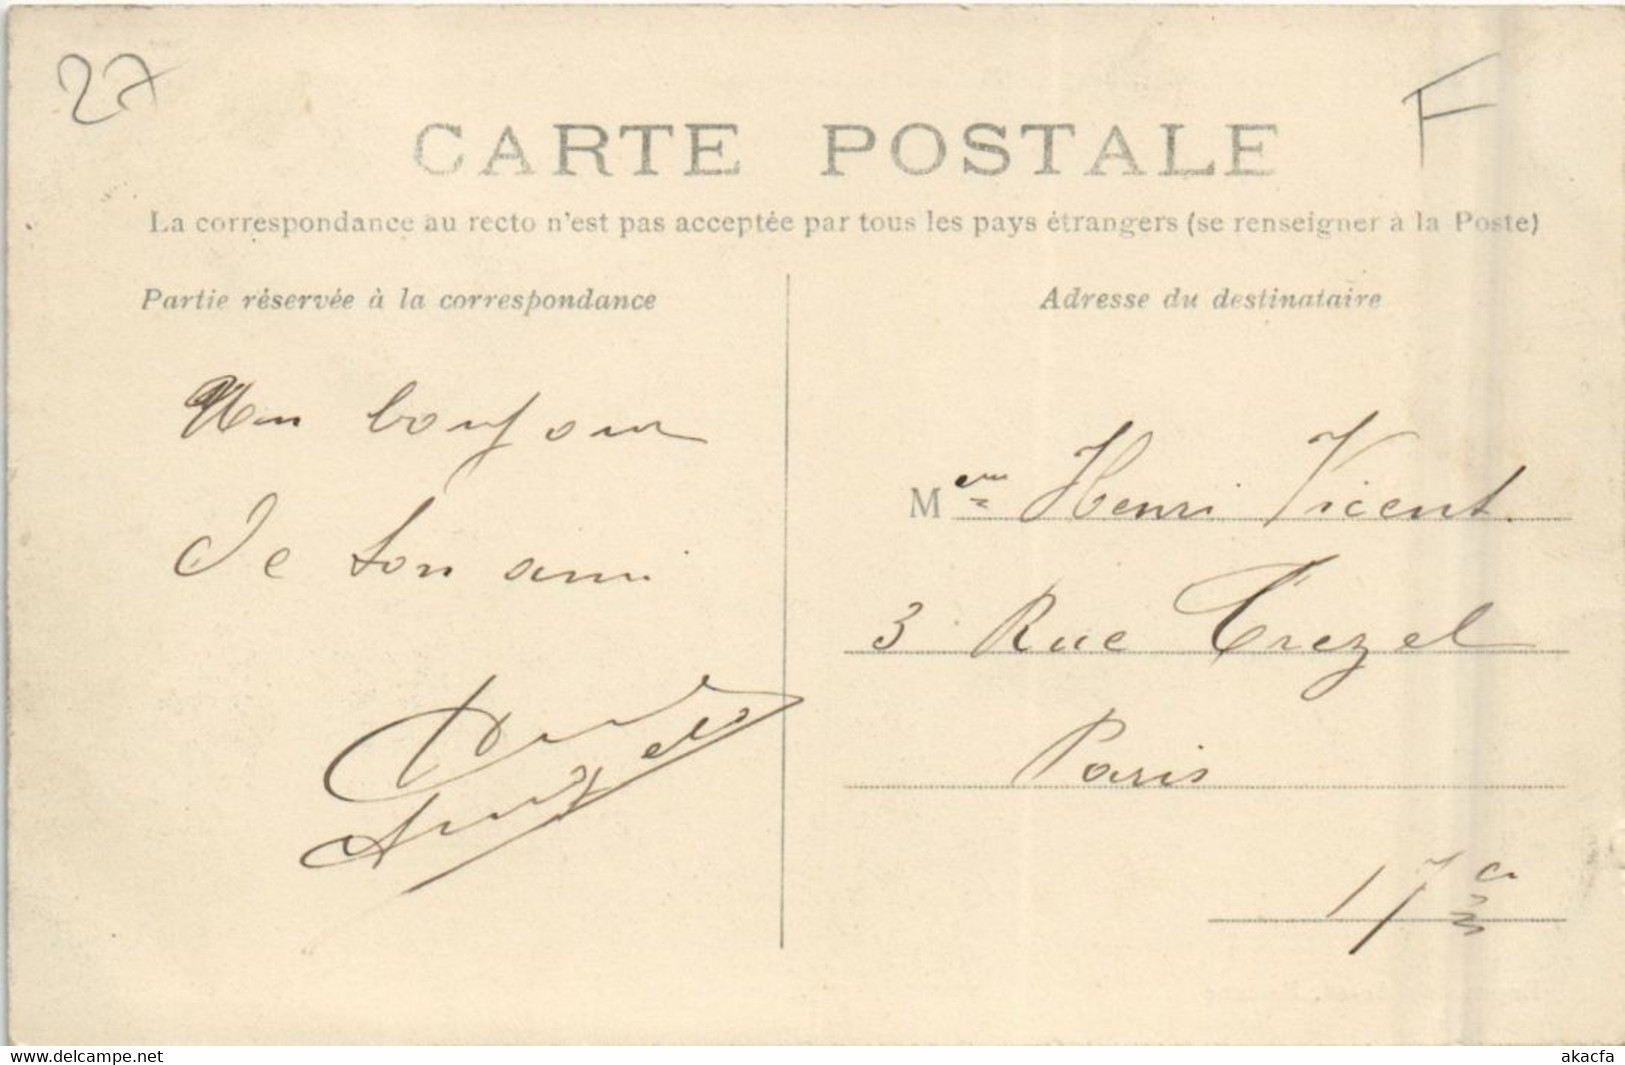 27
F
CARTE POSTALE
La correspondance au recto n'est pas acceptée par tous les pays étrangers (se renseigner à la Poste)
Partie réservée à la correspondance
Adresse du destinataire
Un bonjour
De ton ami
Mme Henri Vicent.
3 Rue Trezel
Paris
17e
www.delcampe.net
akacfa